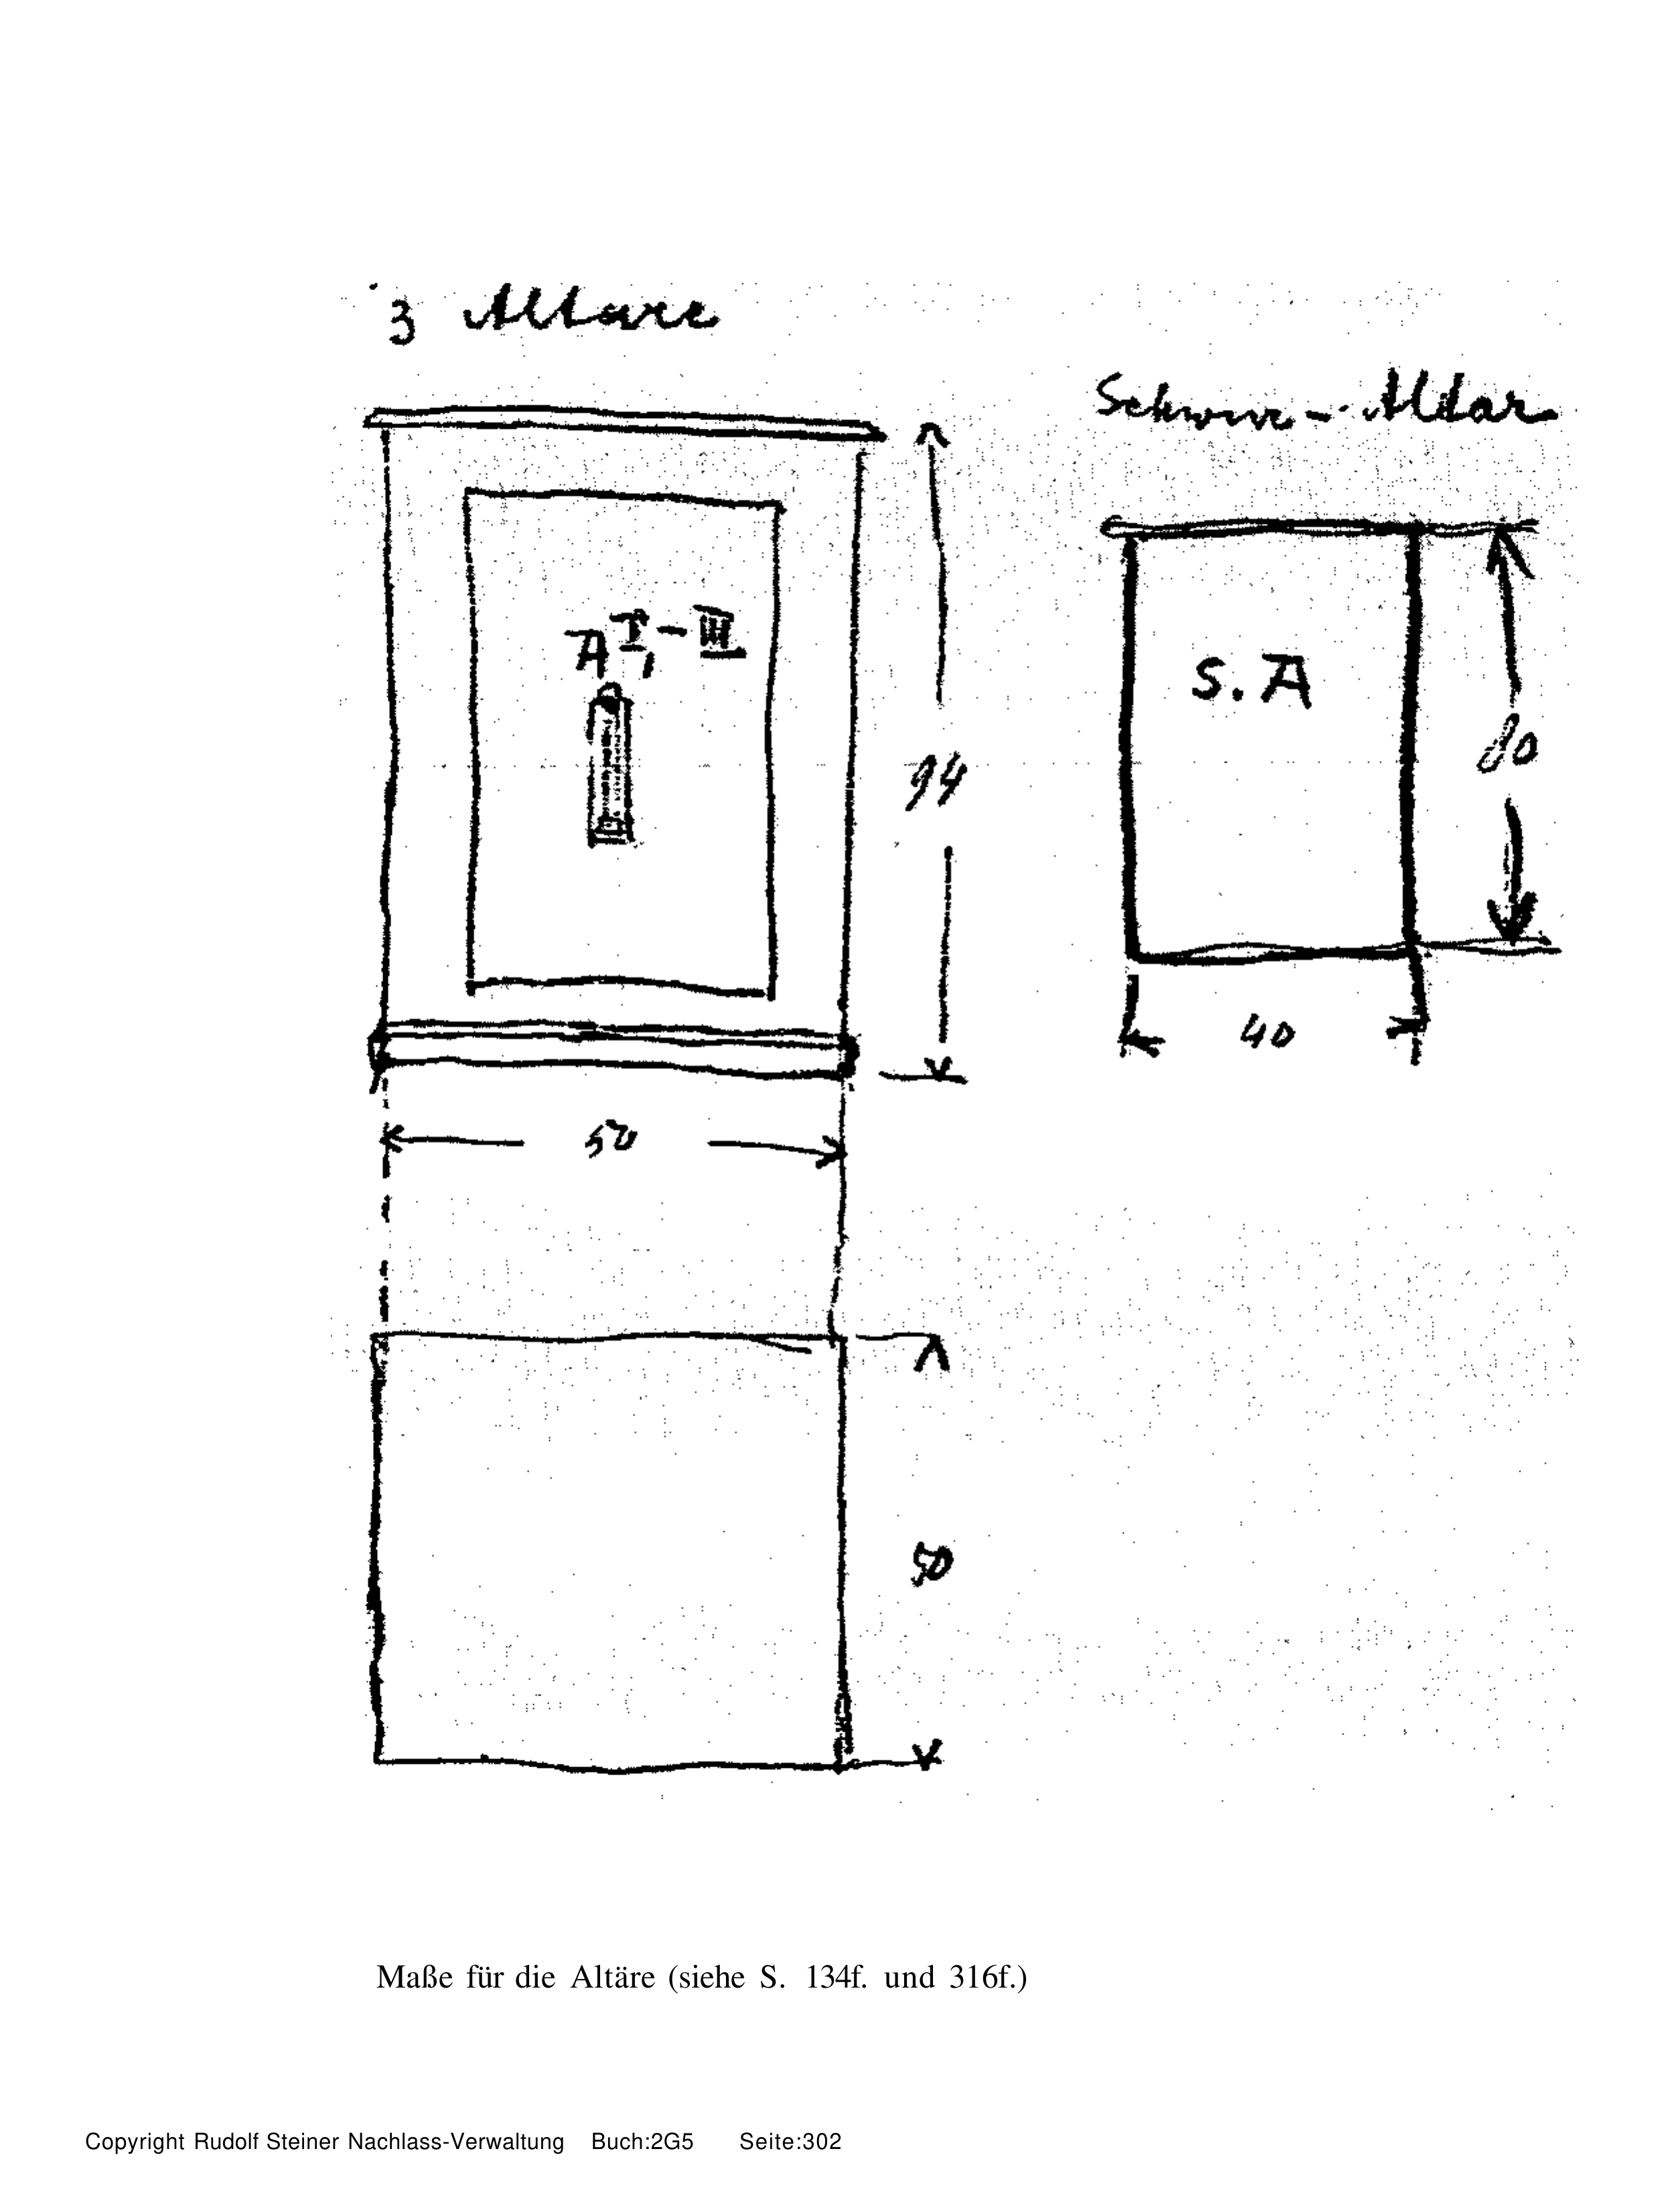 3 Altare
Schwur-Altar
A I, - III
S. A
94
80
40
50
50
Maße für die Altäre (siehe S. 134f. und 316f.)
Copyright Rudolf Steiner Nachlass-Verwaltung Buch:2G5 Seite:302